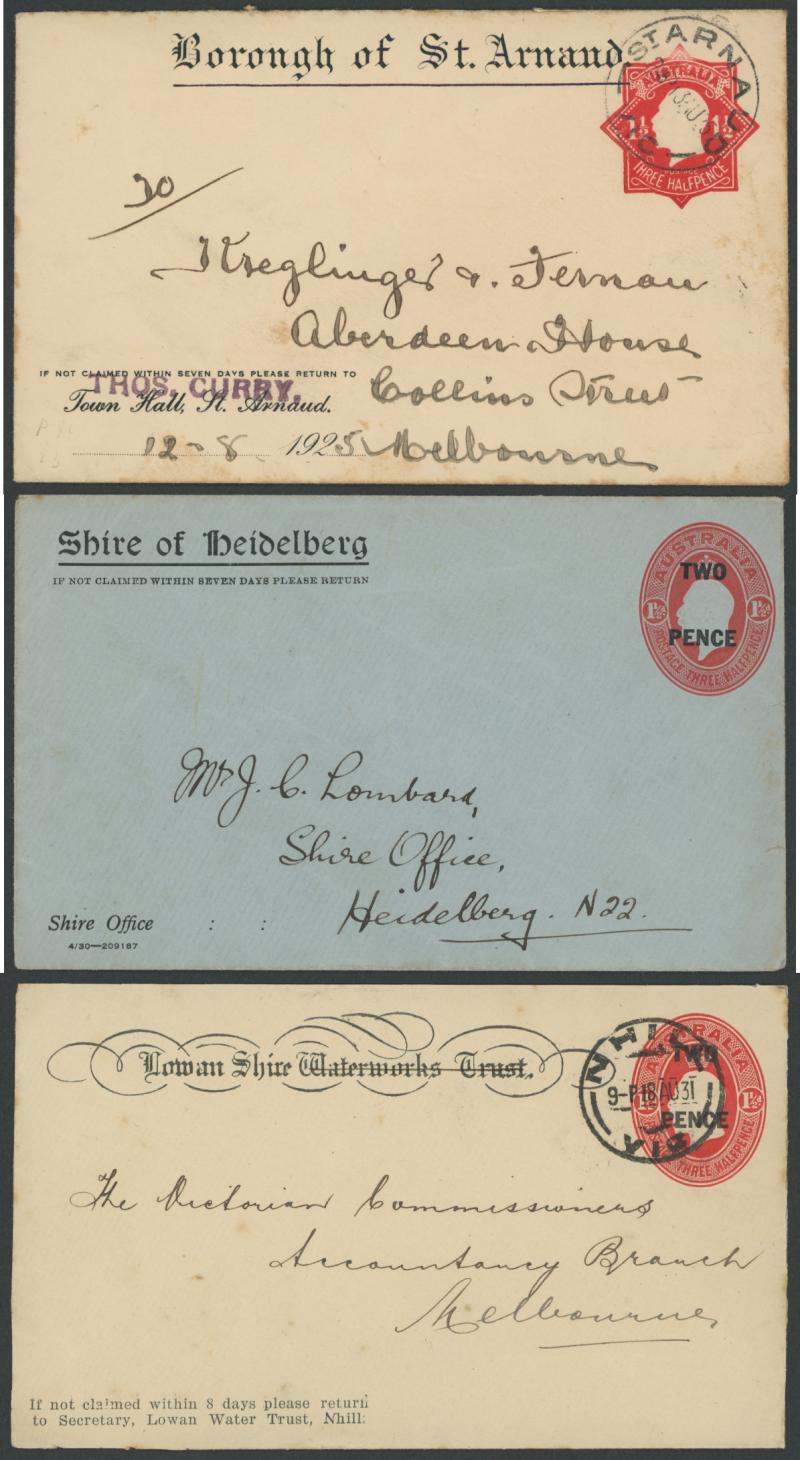 Borough of St. Arnaud.
ST ARNAUD
VIC
AUSTRALIA
1½ 1½
POSTAGE
THREE HALFPENCE
20/
Kreglinger & Fernau
Aberdeen House
IF NOT CLAIMED WITHIN SEVEN DAYS PLEASE RETURN TO
THOS. CURRY.
Collins Street
Town Hall, St. Arnaud.
12-8 1925 Melbourne
Shire of Heidelberg
IF NOT CLAIMED WITHIN SEVEN DAYS PLEASE RETURN
AUSTRALIA
TWO
1½ 1½
PENCE
POSTAGE THREE HALFPENCE
Mr J. C. Lombard,
Shire Office,
Heidelberg. N22.
Shire Office : :
4/30—209187
Lowan Shire Waterworks Trust.
NHILL
9-P 18 AU 31
VIC
AUSTRALIA
TWO
1½ 1½
PENCE
THREE HALFPENCE
The Victorian Commissioners
Accountancy Branch
Melbourne
If not claimed within 8 days please return
to Secretary, Lowan Water Trust, Nhill.